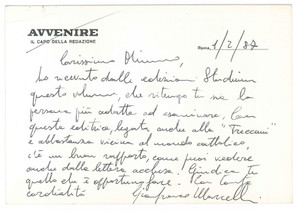 AVVENIRE
IL CAPO DELLA REDAZIONE
Roma, 1/2/87
Carissimo
ho ricevuto dalle edizioni Studium
questo volume, che ritengo tu sia la
persona più adatta ad esaminare. Con
questa editrice, legata anche alla "Treccani"
e abbastanza vicina al mondo cattolico,
c'è un buon rapporto, come puoi vedere
anche dalla lettera acclusa. Giudica tu
quello che è opportuno fare. Con tanta
cordialità
Gianfranco